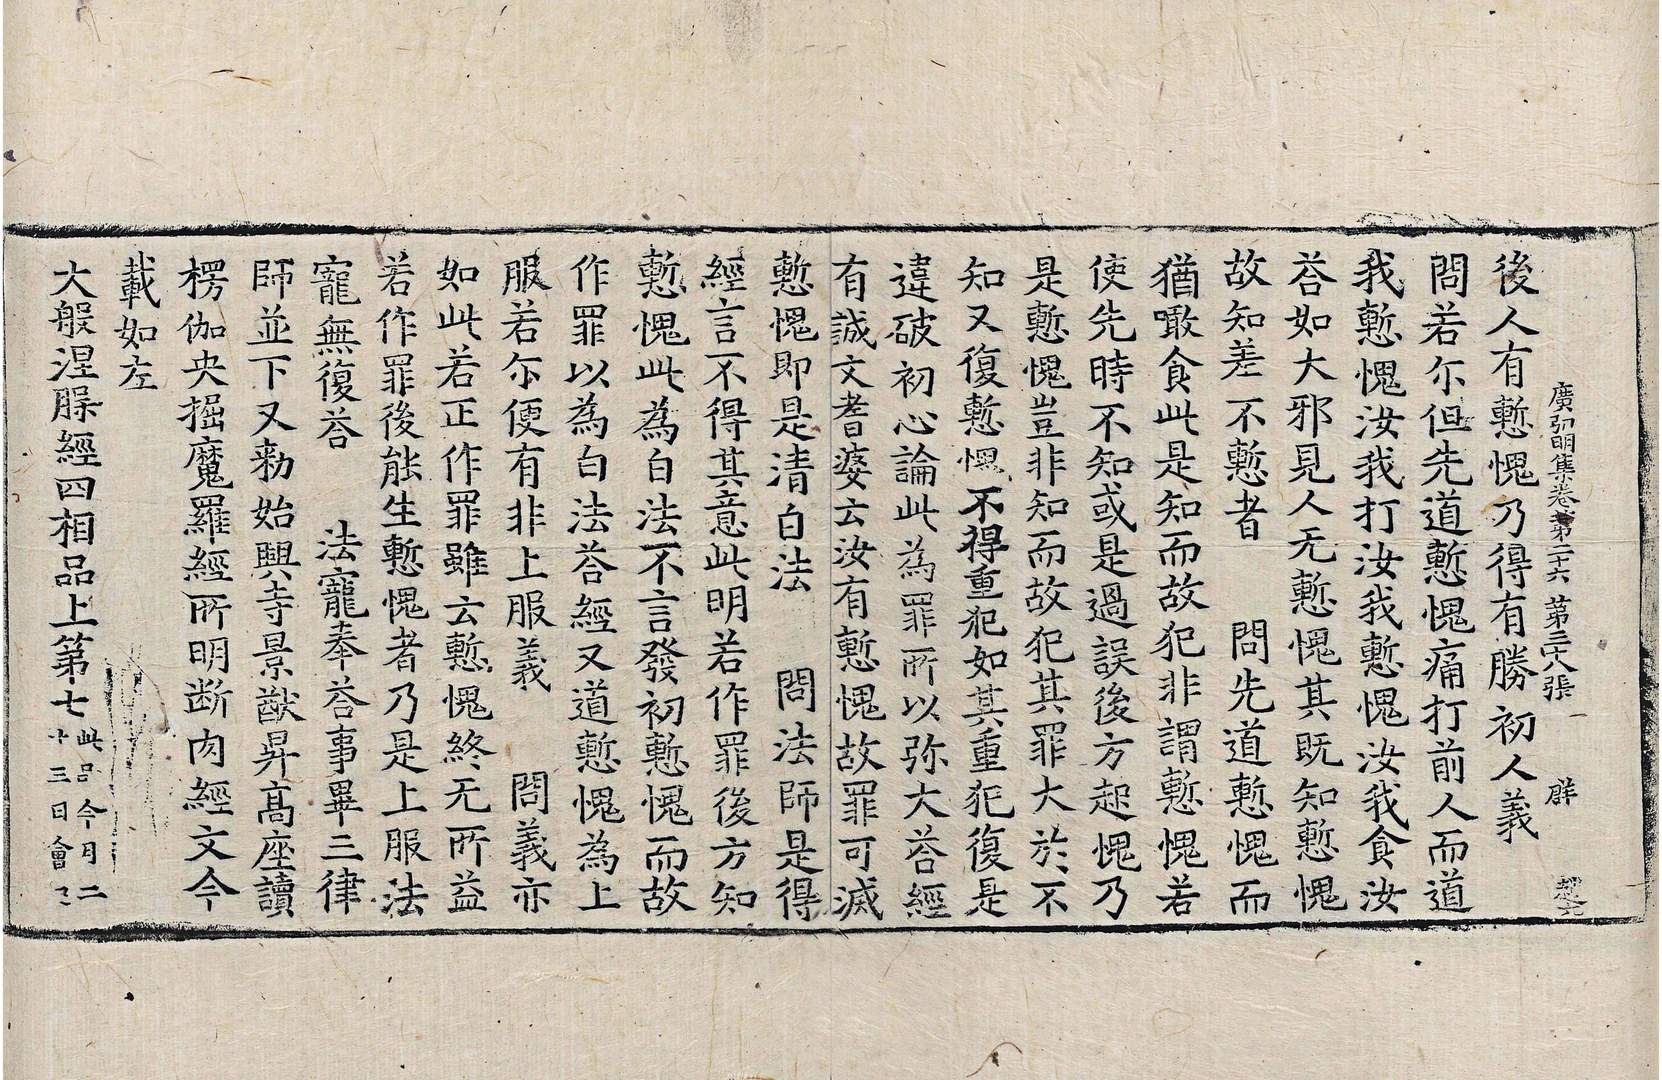 後人有慙愧乃得有勝初人義
廣弘明集卷第二十六 第三十八張 群
問若尒但先道慙愧痛打前人而道
我慙愧汝我打汝我慙愧汝我食汝
荅如大邪見人无慙愧其既知慙愧
故知差不慙者 問先道慙愧而
猶噉食此是知而故犯非謂慙愧若
使先時不知或是過誤後方起愧乃
是慙愧豈非知而故犯其罪大於不
知又復慙愧不得重犯如其重犯復是
違破初心論此為罪所以弥大荅經
有誠文耆婆云汝有慙愧故罪可滅
慙愧即是清白法 問法師是得
經言不得其意此明若作罪後方知
慙愧此為白法不言發初慙愧而故
作罪以為白法荅經又道慙愧為上
服若尒便有非上服義 問義亦
如此若正作罪雖云慙愧終无所益
若作罪後能生慙愧者乃是上服法
寵無復荅 法寵奉荅事畢三律
師並下又勑始興寺景猷昇高座讀
楞伽央掘魔羅經所明断肉經文今
載如左
大般涅槃經四相品上第七
此品今月二
十三日會已